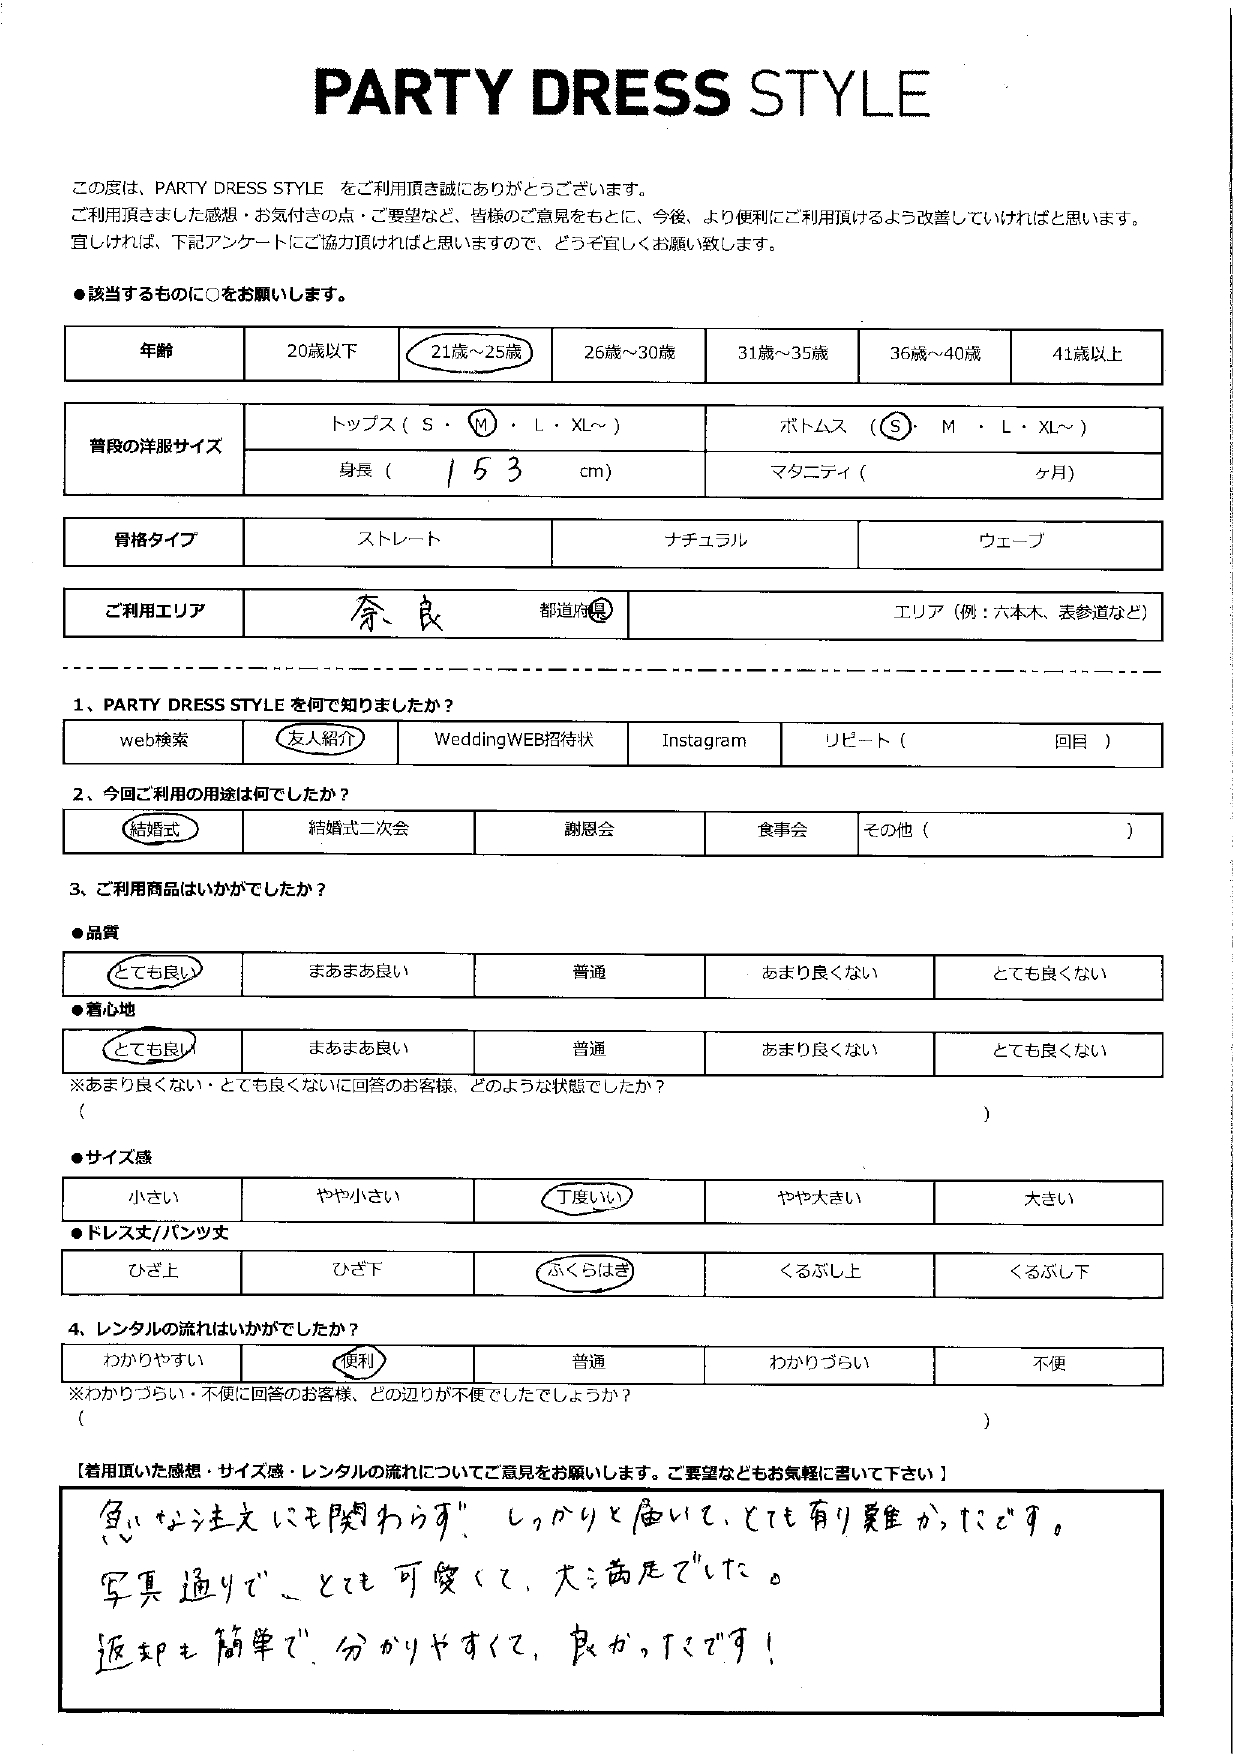 PARTY DRESS STYLE
この度は、PARTY DRESS STYLE をご利用頂き誠にありがとうございます。
ご利用頂きました感想・お気付きの点・ご要望など、皆様のご意見をもとに、今後、より便利にご利用頂けるよう改善していければと思います。
宜しければ、下記アンケートにご協力頂ければと思いますので、どうぞ宜しくお願い致します。
●該当するものに○をお願いします。
年齢 20歳以下 21歳～25歳 26歳～30歳 31歳～35歳 36歳～40歳 41歳以上
普段の洋服サイズ トップス ( S ・ M ・ L ・ XL～ ) ボトムス ( S ・ M ・ L ・ XL～ )
身長 ( 153 cm) マタニティ ( ヶ月)
骨格タイプ ストレート ナチュラル ウェーブ
ご利用エリア 奈良 都道府県 エリア（例：六本木、表参道など）
1、PARTY DRESS STYLE を何で知りましたか？
web検索 友人紹介 WeddingWEB招待状 Instagram リピート ( 回目 )
2、今回ご利用の用途は何でしたか？
結婚式 結婚式二次会 謝恩会 食事会 その他 ( )
3、ご利用商品はいかがでしたか？
●品質
とても良い まあまあ良い 普通 あまり良くない とても良くない
●着心地
とても良い まあまあ良い 普通 あまり良くない とても良くない
※あまり良くない・とても良くないに回答のお客様、どのような状態でしたか？
( )
●サイズ感
小さい やや小さい 丁度いい やや大きい 大きい
●ドレス丈/パンツ丈
ひざ上 ひざ下 ふくらはぎ くるぶし上 くるぶし下
4、レンタルの流れはいかがでしたか？
わかりやすい 便利 普通 わかりづらい 不便
※わかりづらい・不便に回答のお客様、どの辺りが不便でしたでしょうか？
( )
【着用頂いた感想・サイズ感・レンタルの流れについてご意見をお願いします。ご要望などもお気軽に書いて下さい 】
急な注文にも関わらず、しっかりと届いて、とても有り難かったです。
写真通りで、とても可愛くて、大満足でした。
返却も簡単で、分かりやすくて、良かったです！